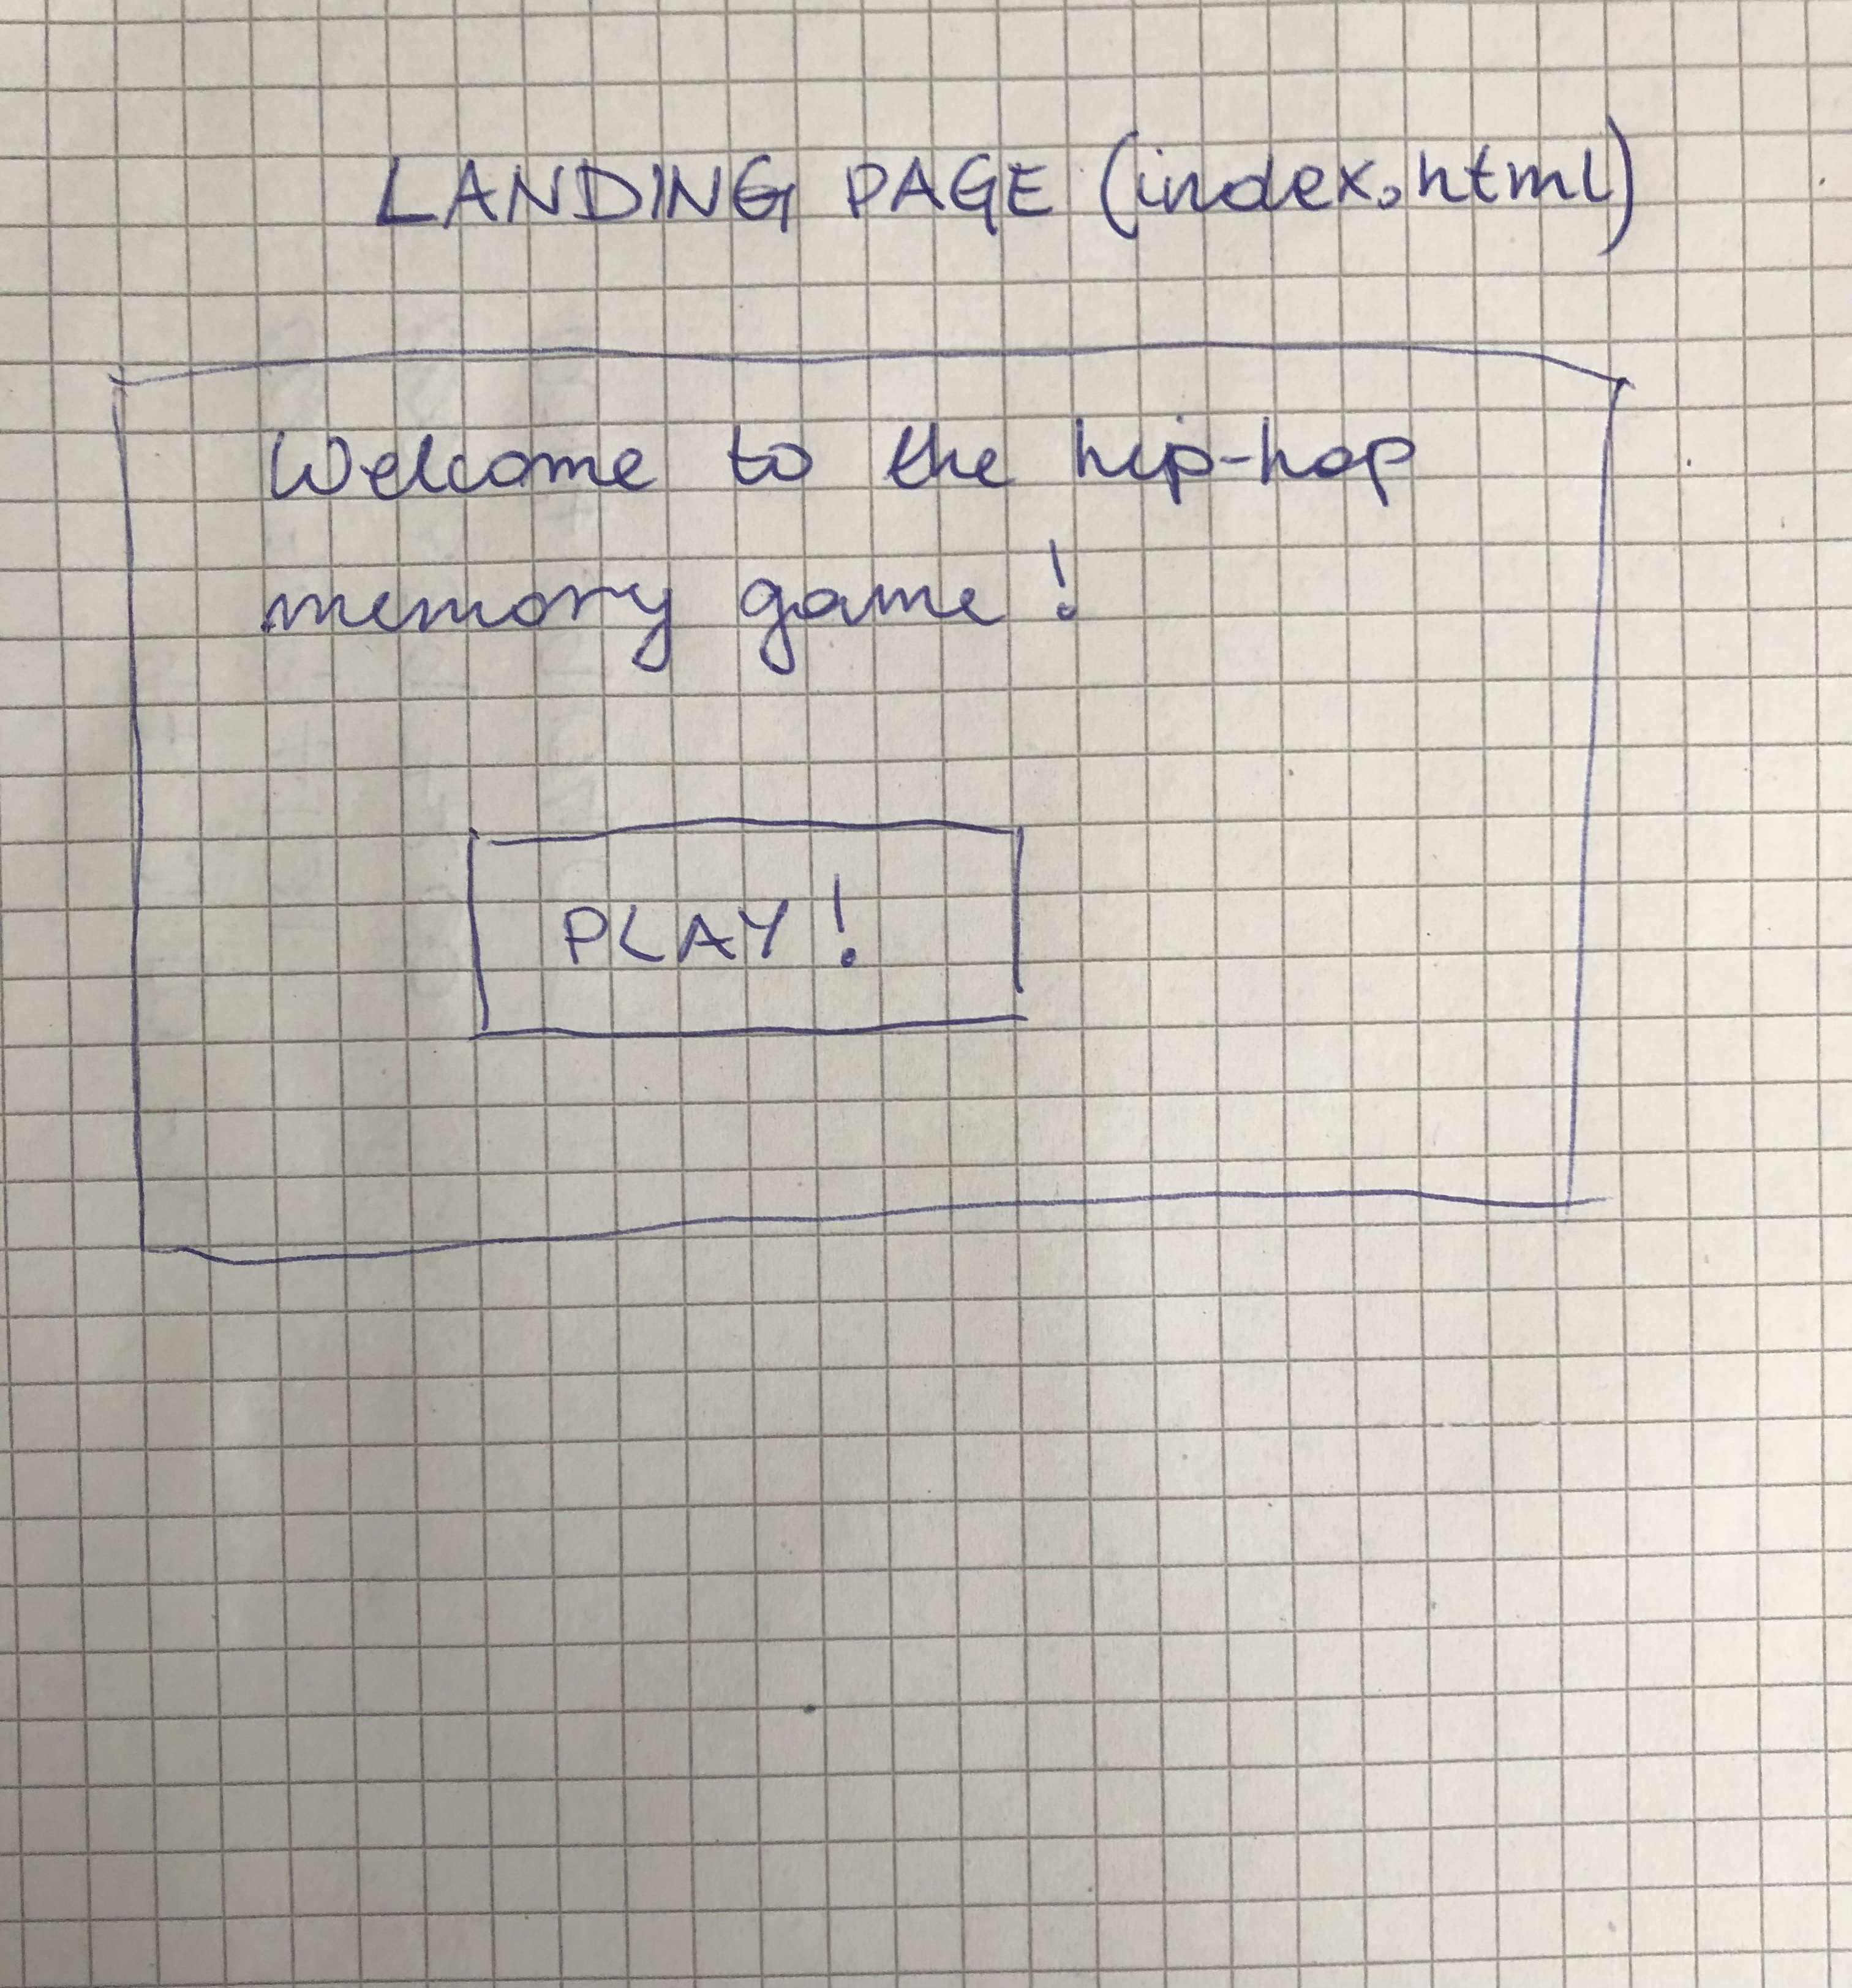 LANDING PAGE (index.html)
Welcome to the hip-hop
memory game!
PLAY!